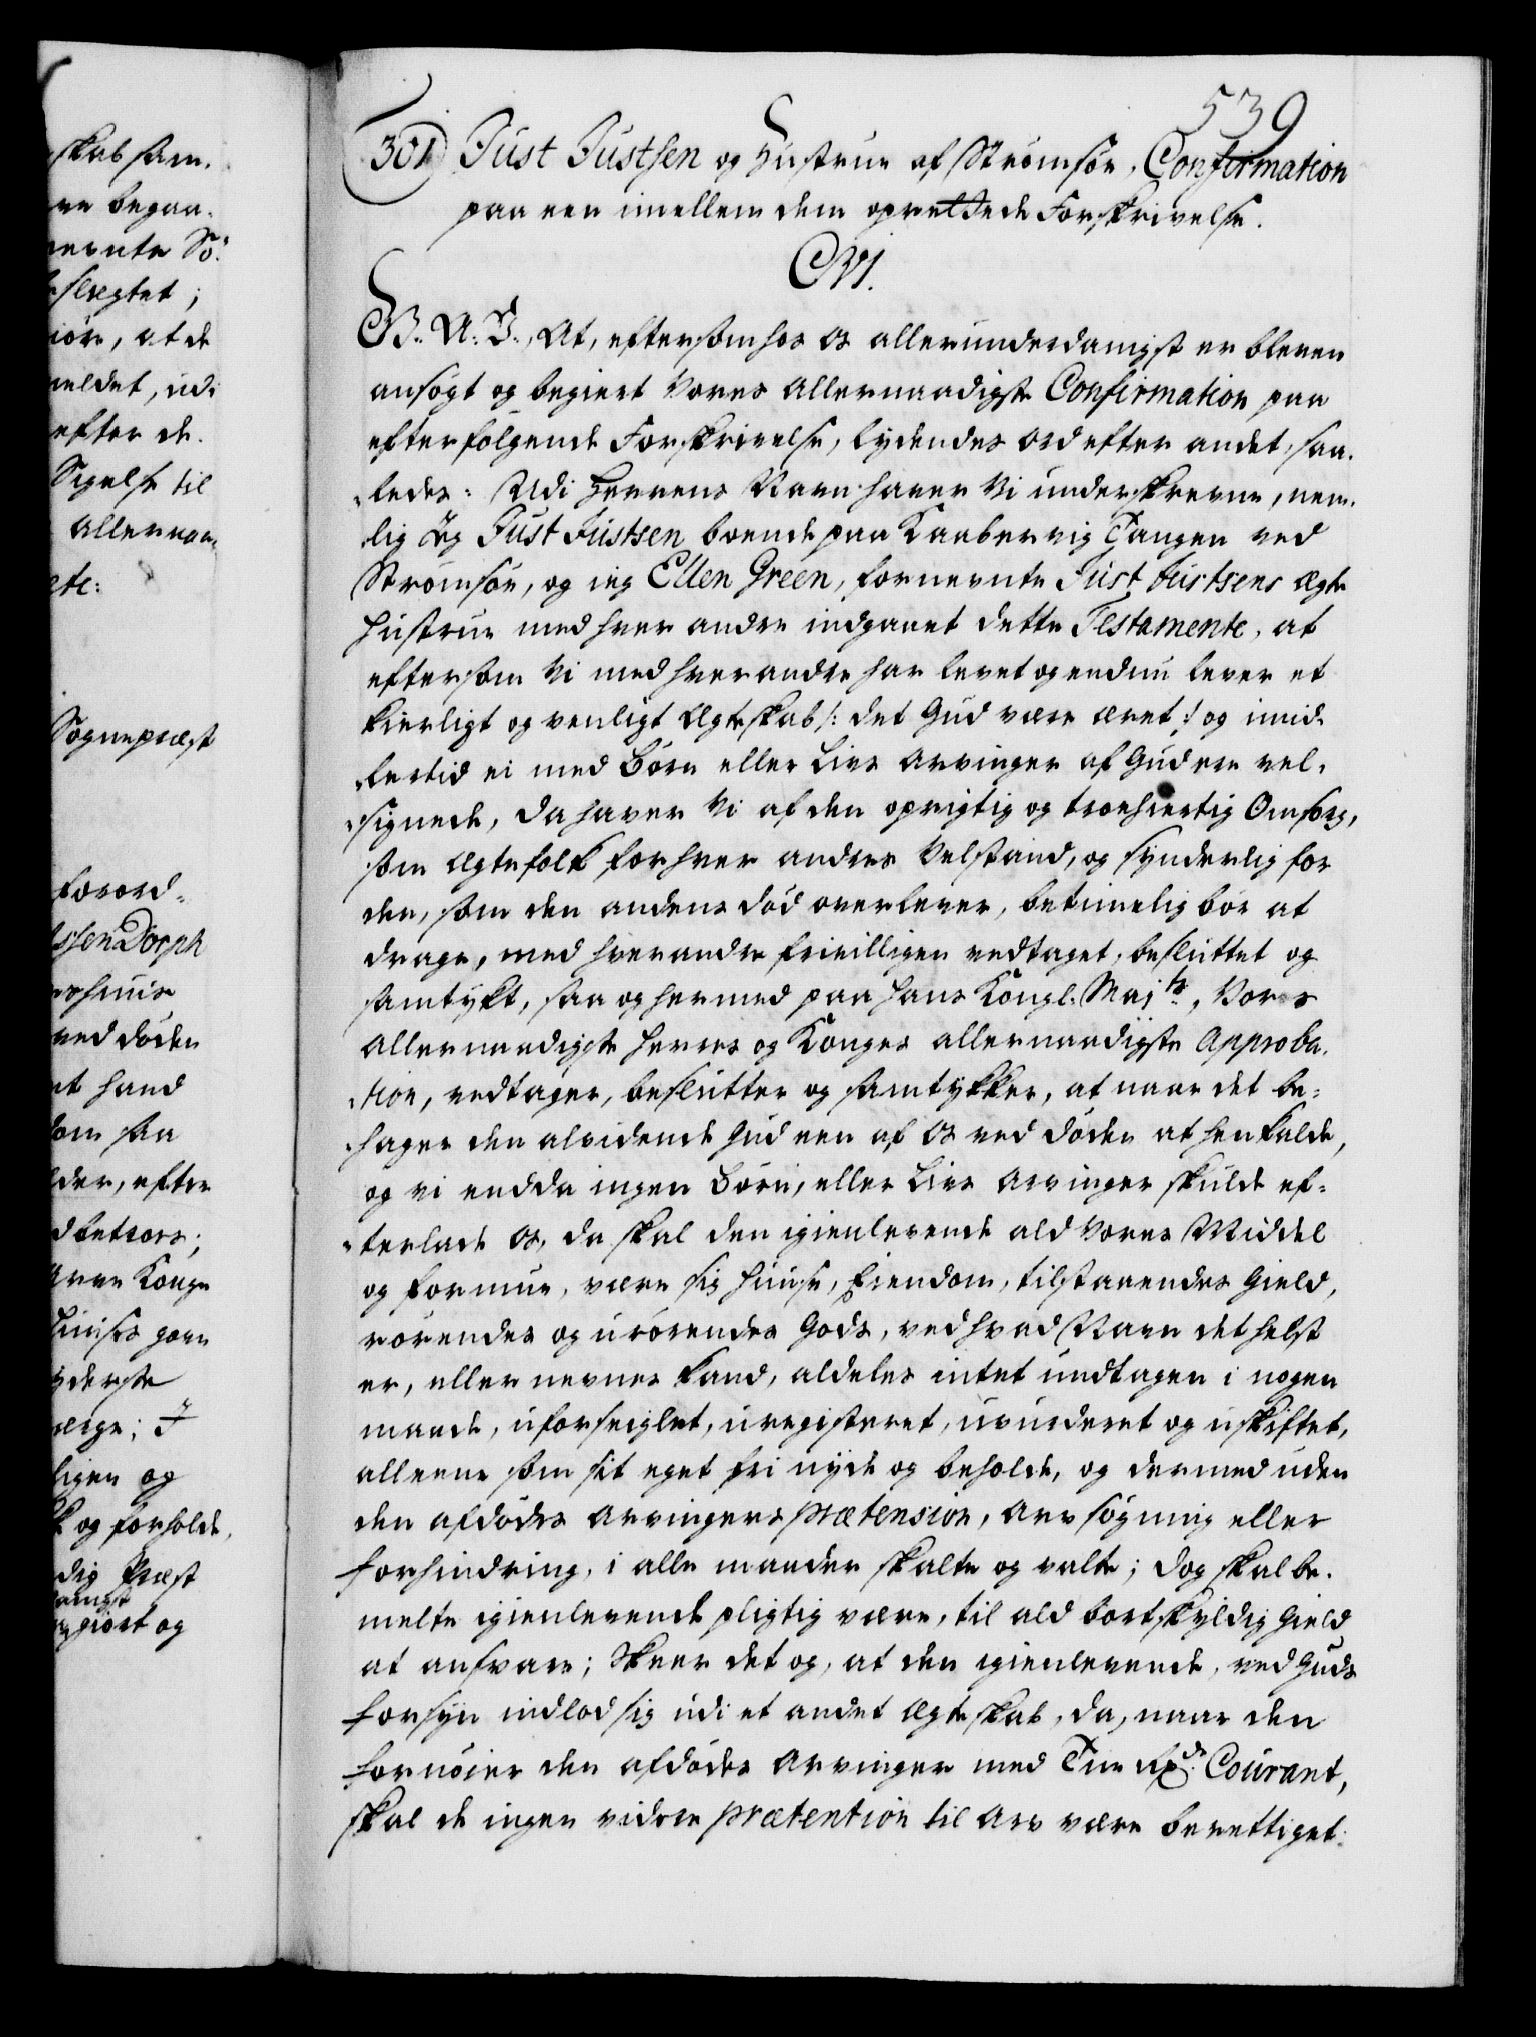 skab sam¬
nevnte Sö¬
slegtet;
iöre, at de
meldet, udi
efter de¬
Sigelse til
Allernaa¬
etc:
Sognepræst
forord¬
ssen Dorph
ved döden
at hand
som saa
lder, efter
Arve Konge
yderste
ligen og
og forholde,
dig Præst
giort og
539
301 Just Justsen og Hustrue af Strömsöe, Confirmation
paa een imellem dem oprettede Forskrivelse.
C. VI.
G. A. V., At, eftersom hos os allerunderdanigst er bleven
ansögt og begiert Vores Allernaadigste Confirmation paa
efterfölgende Forskrivelse, lydendes ord efter andet, saa¬
ledes: Udi Herrens Navn haver Vi underskrevne, nem¬
lig Jeg Just Justsen boende paa Kaabervig Tangen ved
Strömsöe, og ieg Ellen Green, fornevnte Just Justsens ægte
Hustrue med hver andre indgaaet dette Testamente, at
eftersom Vi med hverandre har levet og endnu lever et
kierligt og venligt Ægteskab /: det Gud være æret :/ og imid¬
lertid ei med Börn eller Livs Arvinger af Gud ere vel¬
signede, da haver Vi af den oprigtig og troehiertig Omsorg,
som Ægtefolk for hver andres Velstand, og synderlig for
den, som den andens död overlever, betimelig bör at
drage, med hverandre frivilligen vedtaget, besluttet og
samtykt, saa og hermed paa Hans Kongl. Majts, Vores
Allernaadigste Herres og Konges allernaadigste Approba¬
tion, vedtager, beslutter og samtykker, at naar det be¬
hager den alvidende Gud een af os ved döden at henkalde,
og vi endda ingen Börn, eller Livs Arvinger skulde ef¬
terlade os, da skal den igienlevende ald Vores Middel
og formue, være sig Huuse, Eiendom, tilstaaendes Gield,
rörendes og urörendes Gods, ved hvad Navn det helst
er, eller nevnes kand, aldeles intet undtagen i nogen
maade, uforseiglet, uregisteret, uvurderet og uskiftet,
alleene som sit eget fri nyde og beholde, og dermed uden
den afdödes Arvingers prætension, Arv sögning eller
forhindring, i alle maader skalte og valte; dog skal be¬
melte igienlevende pligtig være, til ald bortskyldig Gield
at ansvare; Skeer det og, at den igienlevende, ved Guds
forsyn indlod sig udi et andet Ægteskab, da, naar den
fornöier den afdödes Arvinger med Tiie Rdr. Courant,
skal de ingen videre prætention til Arv være berettiget.